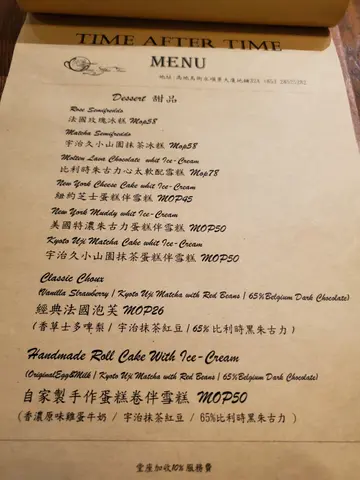 TIME AFTER TIME
MENU
Dessert 甜品
Rose Semifreddo
法國玫瑰冰糕 Mop58
Matcha Semifreddo
宇治久小山園抹茶冰糕 Mop58
Molten Lava Chocolate whit Ice-Cream
比利時朱古力心太軟配雪糕 Mop78
New York Cheese Cake whit Ice-Cream
紐約芝士蛋糕伴雪糕 MOP45
New York Muddy whit Ice-Cream
美國特濃朱古力心蛋糕伴雪糕 MOP50
Kyoto Uji Matcha Cake whit Ice-Cream
宇治久小山園抹茶蛋糕伴雪糕 MOP50
Classic Choux
(Vanilla Strawberry | Kyoto Uji Matcha with Red Beans | 65%Belgium Dark Chocolate)
經典法國泡芙 MOP26
(香草士多啤梨 / 宇治抹茶紅豆 / 65% 比利時黑朱古力 )
Handmade Roll Cake With Ice-Cream
(OriginalEgg&Milk | Kyoto Uji Matcha with Red Beans | 65%Belgium Dark Chocolate)
自家製手作蛋糕卷伴雪糕 MOP50
(香濃原味雞蛋牛奶 / 宇治抹茶紅豆 / 65%比利時黑朱古力 )
堂座加收10% 服務費